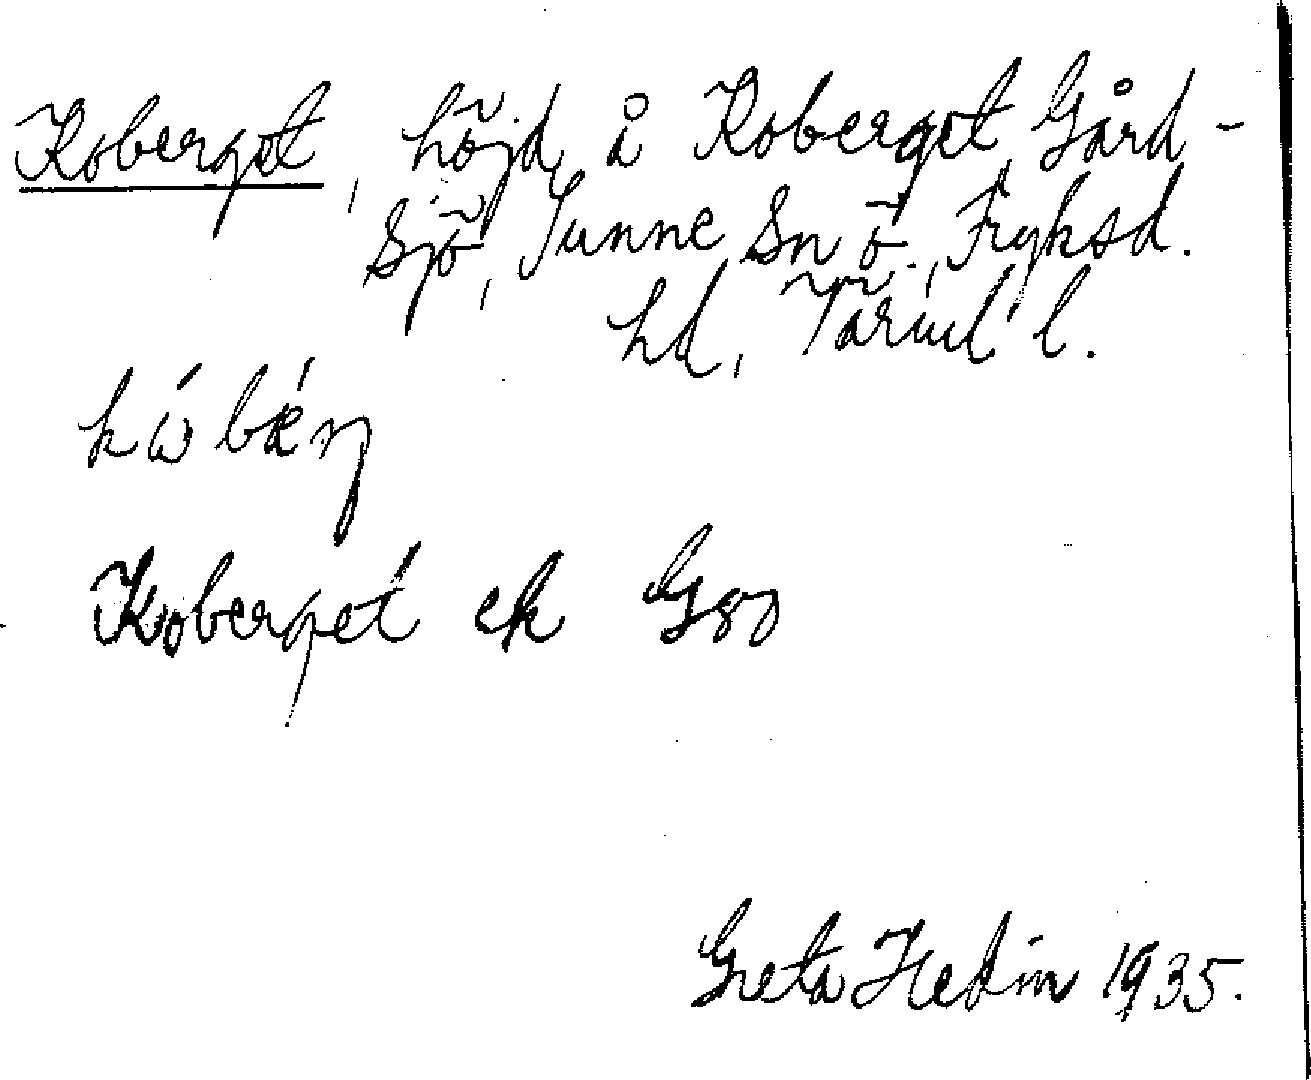 Koberget, höjd å Koberget, Gård-
sjö, Sunne Sn ö., Fryksd.
hd, Värml l.
Koberget ek G80
Greta Hedin 1935.